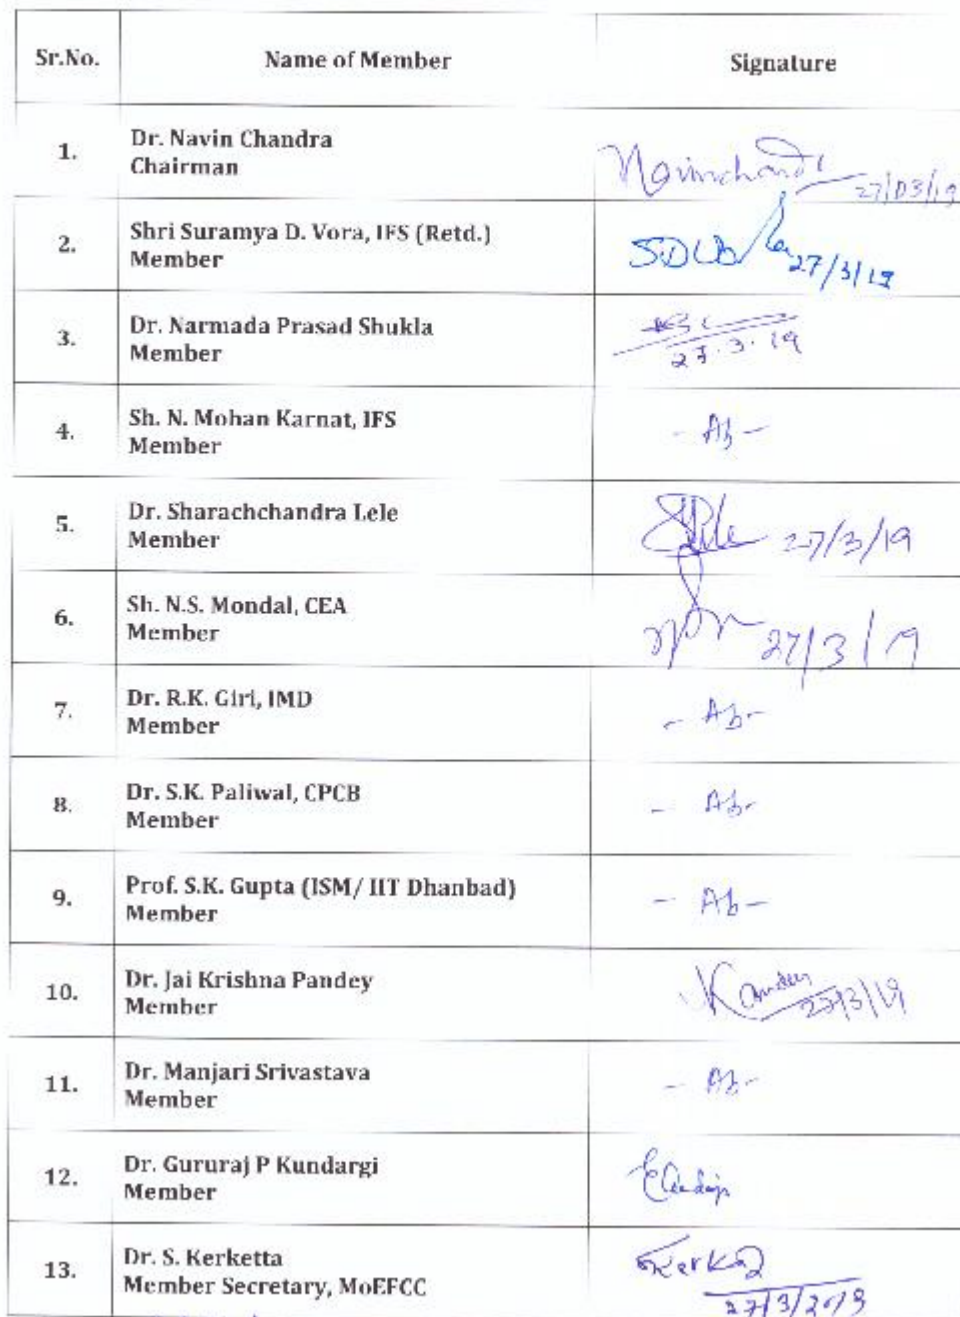 Sr.No. Name of Member Signature
1. Dr. Navin Chandra
Chairman Navinchandra 27/03/19
2. Shri Suramya D. Vora, IFS (Retd.)
Member 27/3/19
3. Dr. Narmada Prasad Shukla
Member 27.3.19
4. Sh. N. Mohan Karnat, IFS
Member - Ab -
5. Dr. Sharachchandra Lele
Member 27/3/19
6. Sh. N.S. Mondal, CEA
Member 27/3/19
7. Dr. R.K. Giri, IMD
Member - Ab -
8. Dr. S.K. Paliwal, CPCB
Member - Ab -
9. Prof. S.K. Gupta (ISM/ IIT Dhanbad)
Member - Ab -
10. Dr. Jai Krishna Pandey
Member 27/3/19
11. Dr. Manjari Srivastava
Member - Ab -
12. Dr. Gururaj P Kundargi
Member
13. Dr. S. Kerketta
Member Secretary, MoEFCC